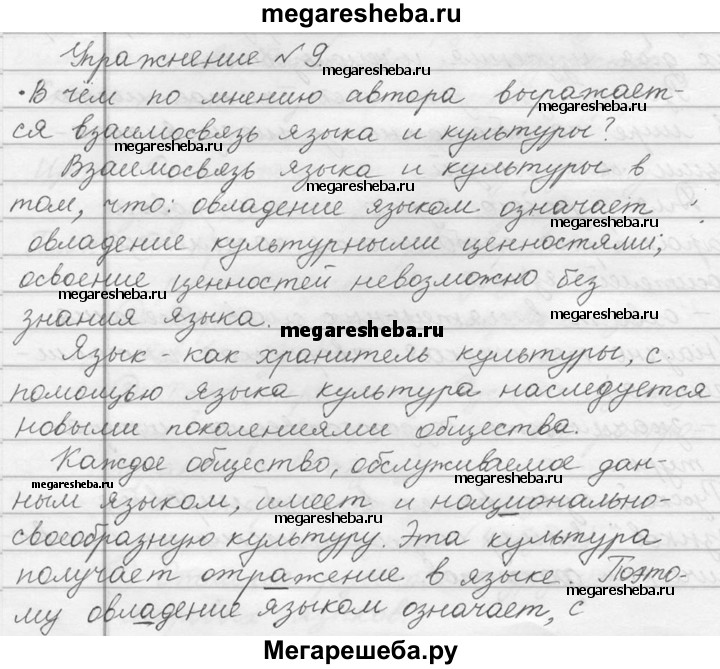 megaresheba.ru
Упражнение №9.
megaresheba.ru
• В чём по мнению автора выражает-
megaresheba.ru
ся взаимосвязь языка и культуры?
megaresheba.ru
Взаимосвязь языка и культуры в
megaresheba.ru
том, что: овладение языком означает
овладение культурными ценностями;
освоение ценностей невозможно без
megaresheba.ru
знания языка.
megaresheba.ru
Язык - как хранитель культуры, с
megaresheba.ru
помощью языка культура наследуется
новыми поколениями общества.
Каждое общество, обслуживаемое дан-
megaresheba.ru
ным языком, имеет и национально-
megaresheba.ru
своеобразную культуру. Эта культура
получает отражение в языке. Поэто-
megaresheba.ru
му овладение языком означает, с
Мегарешеба.ру